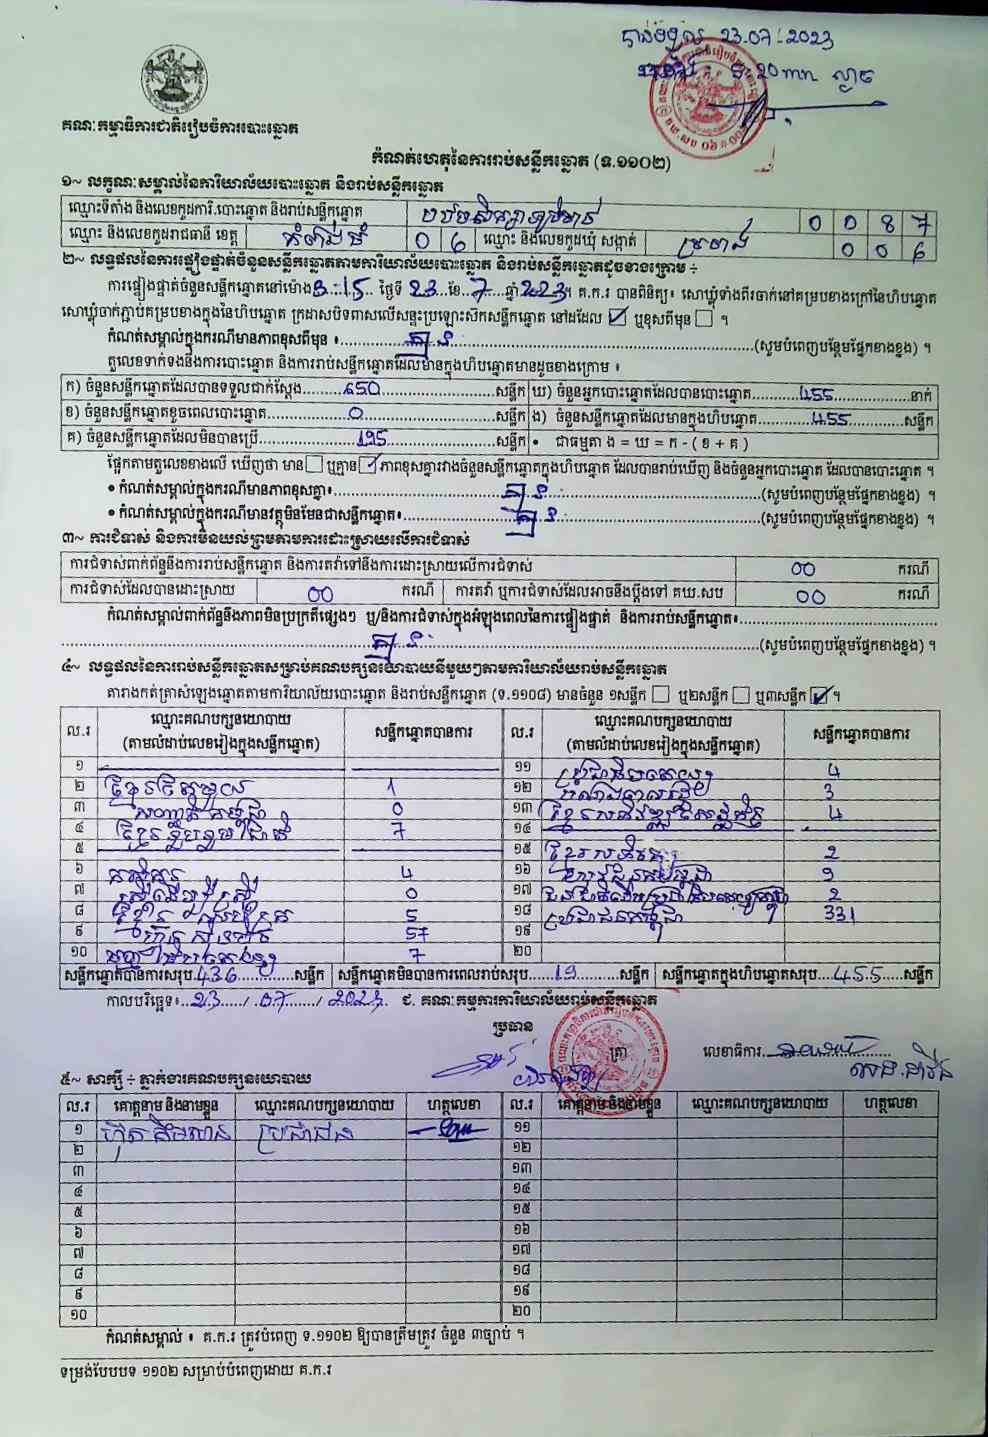 បានទទួល 23.07.2023
គណៈកម្មាធិការជាតិរៀបចំការបោះឆ្នោត
កំណត់ហេតុនៃការរាប់សន្លឹកឆ្នោត (ទ.១១០២)
១~ លក្ខណៈសម្គាល់នៃការិយាល័យបោះឆ្នោត និងរាប់សន្លឹកឆ្នោត
ឈ្មោះទីតាំង និងលេខកូដការិ.បោះឆ្នោត និងរាប់សន្លឹកឆ្នោត 0 0 8 7
ឈ្មោះ និងលេខកូដរាជធានី ខេត្ត កំពង់ធំ 0 6 ឈ្មោះ និងលេខកូដឃុំ សង្កាត់ 0 0 6
២~ លទ្ធផលនៃការផ្ទៀងផ្ទាត់ចំនួនសន្លឹកឆ្នោតតាមការិយាល័យបោះឆ្នោត និងរាប់សន្លឹកឆ្នោតដូចខាងក្រោម ÷
ការផ្ទៀងផ្ទាត់ចំនួនសន្លឹកឆ្នោតនៅម៉ោង 3:15 ថ្ងៃទី 23 ខែ 7 ឆ្នាំ 2023។ គ.ក.រ បានពិនិត្យ៖ សោឃ្លុំទាំងពីរចាក់នៅគម្របខាងក្រៅនៃហិបឆ្នោត
សោឃ្លុំចាក់ភ្ជាប់គម្របខាងក្នុងនៃហិបឆ្នោត ក្រដាសបិទពាសលើសន្ទះប្រឡោះសឹកសន្លឹកឆ្នោត នៅដដែល ☑ ឬខុសពីមុន ☐ ។
កំណត់សម្គាល់ក្នុងករណីមានភាពខុសពីមុន ៖ គ្មាន (សូមបំពេញបន្ថែមផ្នែកខាងខ្នង) ។
តួលេខទាក់ទងនឹងការបោះឆ្នោត និងការរាប់សន្លឹកឆ្នោតដែលមានក្នុងហិបឆ្នោតមានដូចខាងក្រោម ៖
ក) ចំនួនសន្លឹកឆ្នោតដែលបានទទួលជាក់ស្ដែង 650 សន្លឹក ឃ) ចំនួនអ្នកបោះឆ្នោតដែលបានបោះឆ្នោត 455 នាក់
ខ) ចំនួនសន្លឹកឆ្នោតខូចពេលបោះឆ្នោត 0 សន្លឹក ង) ចំនួនសន្លឹកឆ្នោតដែលមានក្នុងហិបឆ្នោត 455 សន្លឹក
គ) ចំនួនសន្លឹកឆ្នោតដែលមិនបានប្រើ 195 សន្លឹក • ជាធម្មតា ង = ឃ = ក - ( ខ + គ )
ផ្អែកតាមតួលេខខាងលើ ឃើញថា មាន ☐ ឬគ្មាន ☑ ភាពខុសគ្នារវាងចំនួនសន្លឹកឆ្នោតក្នុងហិបឆ្នោត ដែលបានរាប់ឃើញ និងចំនួនអ្នកបោះឆ្នោត ដែលបានបោះឆ្នោត ។
• កំណត់សម្គាល់ក្នុងករណីមានភាពខុសគ្នា៖ គ្មាន (សូមបំពេញបន្ថែមផ្នែកខាងខ្នង) ។
• កំណត់សម្គាល់ក្នុងករណីមានវត្ថុមិនមែនជាសន្លឹកឆ្នោត៖ គ្មាន (សូមបំពេញបន្ថែមផ្នែកខាងខ្នង) ។
៣~ ការជំទាស់ និងការមិនយល់ព្រមតាមការដោះស្រាយលើការជំទាស់
ការជំទាស់ពាក់ព័ន្ធនឹងការរាប់សន្លឹកឆ្នោត និងការតវ៉ាទៅនឹងការដោះស្រាយលើការជំទាស់ 00 ករណី
ការជំទាស់ដែលបានដោះស្រាយ 00 ករណី ការតវ៉ា ឬការជំទាស់ដែលអាចនឹងប្ដឹងទៅ គឃ.សប 00 ករណី
កំណត់សម្គាល់ពាក់ព័ន្ធនឹងភាពមិនប្រក្រតីផ្សេងៗ ឬ/និងការជំទាស់ក្នុងអំឡុងពេលនៃការផ្ទៀងផ្ទាត់ និងការរាប់សន្លឹកឆ្នោត៖
គ្មាន (សូមបំពេញបន្ថែមផ្នែកខាងខ្នង) ។
៤~ លទ្ធផលនៃការរាប់សន្លឹកឆ្នោតសម្រាប់គណបក្សនយោបាយនីមួយៗតាមការិយាល័យរាប់សន្លឹកឆ្នោត
តារាងកត់ត្រាសំឡេងឆ្នោតតាមការិយាល័យបោះឆ្នោត និងរាប់សន្លឹកឆ្នោត (ទ.១១០៨) មានចំនួន ១សន្លឹក ☐ ឬ២សន្លឹក ☐ ឬ៣សន្លឹក ☑ ។
ល.រ ឈ្មោះគណបក្សនយោបាយ (តាមលំដាប់លេខរៀងក្នុងសន្លឹកឆ្នោត) សន្លឹកឆ្នោតបានការ ល.រ ឈ្មោះគណបក្សនយោបាយ (តាមលំដាប់លេខរៀងក្នុងសន្លឹកឆ្នោត) សន្លឹកឆ្នោតបានការ
១ ១១ 4
២ ខ្មែរតែមួយ 1 ១២ 3
៣ សញ្ជាតិកម្ពុជា 0 ១៣ 4
៤ ខ្មែររួបរួមជាតិ 7 ១៤
៥ ១៥ 2
៦ កសិករ 4 ១៦ 9
៧ ស្ត្រីដើម្បីស្ត្រី 0 ១៧ 2
៨ 5 ១៨ ប្រជាជនកម្ពុជា 331
៩ ហ៊្វុនស៊ិនប៉ិច 57 ១៩
១០ 7 ២០
សន្លឹកឆ្នោតបានការសរុប 436 សន្លឹក សន្លឹកឆ្នោតមិនបានការពេលរាប់សរុប 19 សន្លឹក សន្លឹកឆ្នោតក្នុងហិបឆ្នោតសរុប 455 សន្លឹក
កាលបរិច្ឆេទ៖ 23 / 07 / 2023 ជ. គណៈកម្មការការិយាល័យរាប់សន្លឹកឆ្នោត
ប្រធាន
ត្រា លេខាធិការ
៥~ សាក្សី ÷ ភ្នាក់ងារគណបក្សនយោបាយ
ល.រ គោត្តនាម និងនាមខ្លួន ឈ្មោះគណបក្សនយោបាយ ហត្ថលេខា ល.រ គោត្តនាម និងនាមខ្លួន ឈ្មោះគណបក្សនយោបាយ ហត្ថលេខា
១ ប្រជាជន ១១
២ ១២
៣ ១៣
៤ ១៤
៥ ១៥
៦ ១៦
៧ ១៧
៨ ១៨
៩ ១៩
១០ ២០
កំណត់សម្គាល់ ៖ គ.ក.រ ត្រូវបំពេញ ទ.១១០២ ឱ្យបានត្រឹមត្រូវ ចំនួន ៣ច្បាប់ ។
ទម្រង់បែបបទ ១១០២ សម្រាប់បំពេញដោយ គ.ក.រ